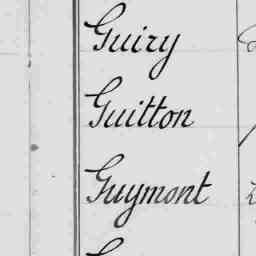 Guiry
Guitton
Guymont